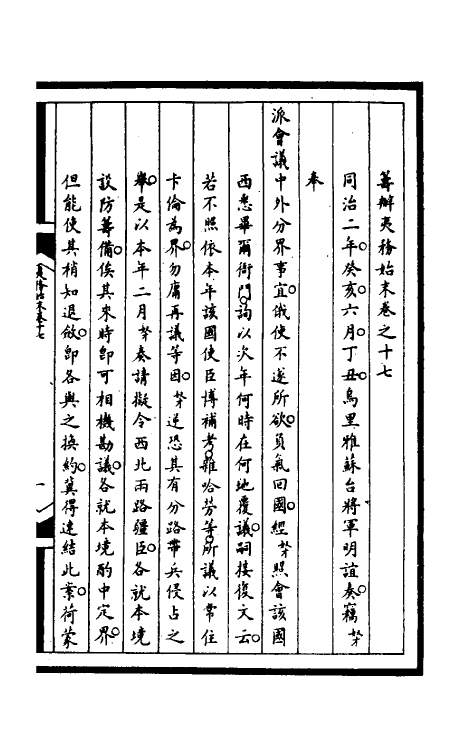 籌辦夷務始末卷之十七
同治二年癸亥六月丁丑烏里雅蘇台將軍明誼奏竊奴才
奉
派會議中外分界事宜俄使不遂所欲負氣回國經奴才照會該國
西悉畢爾衙門詢以次年何時在何地覆議嗣接復文云
若不照依本年該國使臣博補考雜哈勞等所議以常住
卡倫為界勿庸再議等因奴才逆恐其有分路帶兵侵占之
舉是以本年二月奴才奏請擬令西北兩路疆臣各就本境
設防籌備俟其來時卽可相機勘議各就本境酌中定界
但能使其稍知退斂卽各與之換約冀得速結此案荷蒙
一